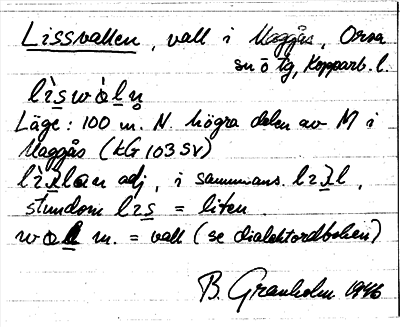 Lissvallen, vall i Maggås, Orsa
sn o tg, Kopparb. l.
lìswòln̥
Läge: 100 m. N. högra delen av M i
Maggås (kG 103 SV)
adj, i sammans.
stundom lis = liten.
m. = vall (se dialektordboken)
B. Granholm 1946